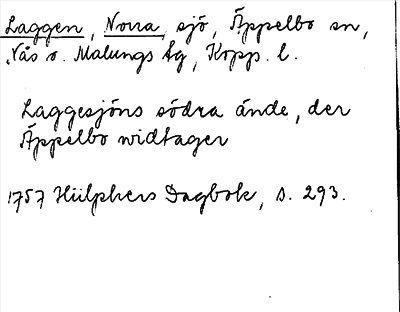 Laggen, Norra, sjö, Äppelbo sn,
Nås o. Malungs tg, Kopp. l.
Laggesjöns södra ände, der
Äppelbo widtager
1757 Hülphers Dagbok, s. 293.